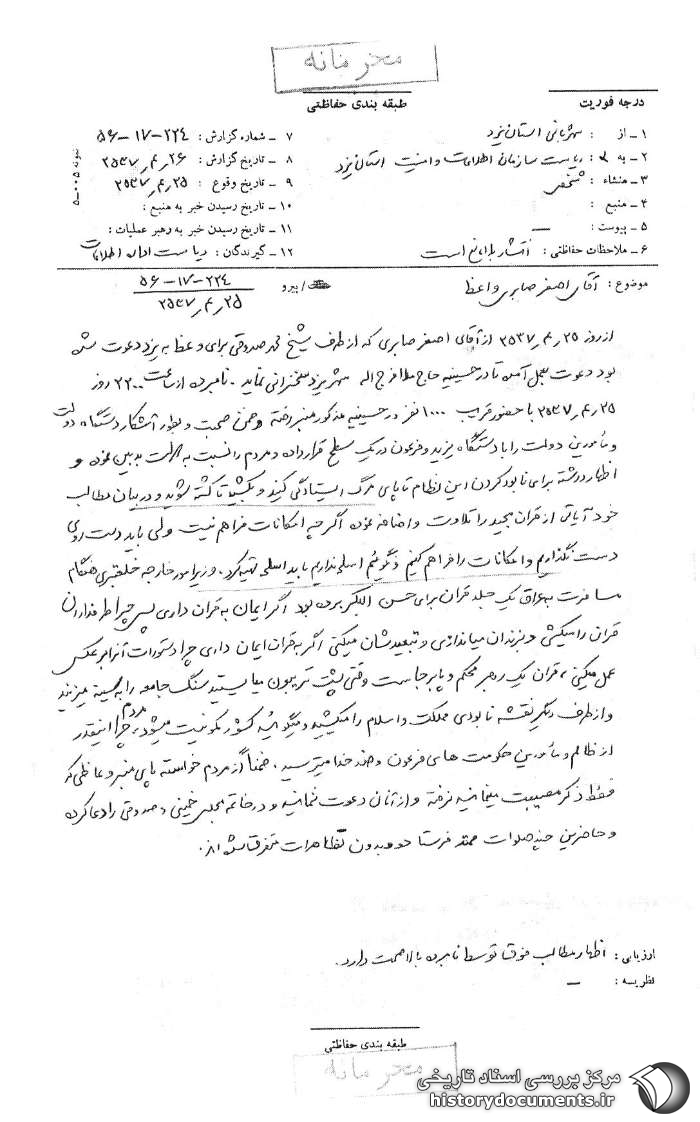 محرمانه
طبقه بندی حفاظتی
درجه فوریت
۱ ـ از : شهربانی استان یزد
۷ ـ شماره گزارش : ۲۲۴-۱۷-۵۶
۲ ـ به : ریاست سازمان اطلاعات و امنیت استان یزد
۸ ـ تاریخ گزارش : ۲۶ر۴ر۲۵۳۷
۳ ـ منشاء : شخصی
۹ ـ تاریخ وقوع : ۲۵ر۴ر۲۵۳۷
۴ ـ منبع :
۱۰ ـ تاریخ رسیدن خبر به منبع :
۵ ـ پیوست : —
۱۱ ـ تاریخ رسیدن خبر به رهبر عملیات :
۶ ـ ملاحظات حفاظتی : انتشار بلامانع است
۱۲ ـ گیرندگان : ریاست اداره اطلاعات
نمونه ۰۰۵-۵
موضوع : آقای اصغر صابری واعظ
/پیرو ۲۲۴-۱۷-۵۶
۲۵ر۴ر۲۵۳۷
از روز ۲۵ر۴ر۲۵۳۷ از آقای اصغر صابری که از طرف شیخ محمد صدوقی برای وعظ به یزد دعوت شده
بود دعوت بعمل آمده تا در حسینیه حاج ملا فرج اله شهر یزد سخنرانی نماید . نامبرده از ساعت ۲۲۰۰ روز
۲۵ر۴ر۲۵۳۷ با حضور قریب ۱۰۰۰ نفر در حسینیه مذکور منبر رفته و ضمن صحبت و بطور آشکار دستگاه دولت
و مأمورین دولت را با دستگاه یزید و فرعون در یک سطح قرار داده و مردم را نسبت به دولت بدبین نموده و
اظهار داشته برای نابود کردن این نظام تا پای مرگ ایستادگی کنید و بکشید تا کشته شوید و در بیان مطالب
خود آیاتی از قران مجید را تلاوت و اضافه نموده اگر چه امکانات فراهم نیست ولی باید دست روی
دست نگذاریم و امکانات را فراهم کنیم و نگوئیم اسلحه نداریم باید اسلحه تهیه کرد . وزیر امور خارجه خلعتبری هنگام
مسافرت به عراق یک جلد قران برای حسن البکر برده بود اگر ایمان به قران داری پس چرا طرفداران
قران را میکشی و بزندان میاندازی و تبعیدشان میکنی اگر به قران ایمان داری چرا دستورات آنرا برعکس
عمل میکنی ، قران یک رهبر محکم و پابرجاست وقتی پشت تریبون میایستید سنگ جامعه را به سینه میزنید
و از طرف دیگر نقشه نابودی مملکت و اسلام را میکشید و میگوئید کشور کمونیست میشود ، مردم چرا اینقدر
از ظالم و مأمورین حکومت های فرعون و ضد خدا میترسید . ضمناً از مردم خواسته پای منبر وعاظی که
فقط ذکر مصیبت مینمایند نرفته و از آنان دعوت ننمایند و در خاتمه مجلس خمینی و صدوقی را دعا کرده
و حاضرین چند صلوات فرستاده و بدون تظاهرات متفرق شده اند .
ارزیابی : اظهار مطالب فوق توسط نامبرده بالا صحت دارد .
نظریه : —
طبقه بندی حفاظتی
محرمانه
مرکز بررسی اسناد تاریخی
historydocuments.ir